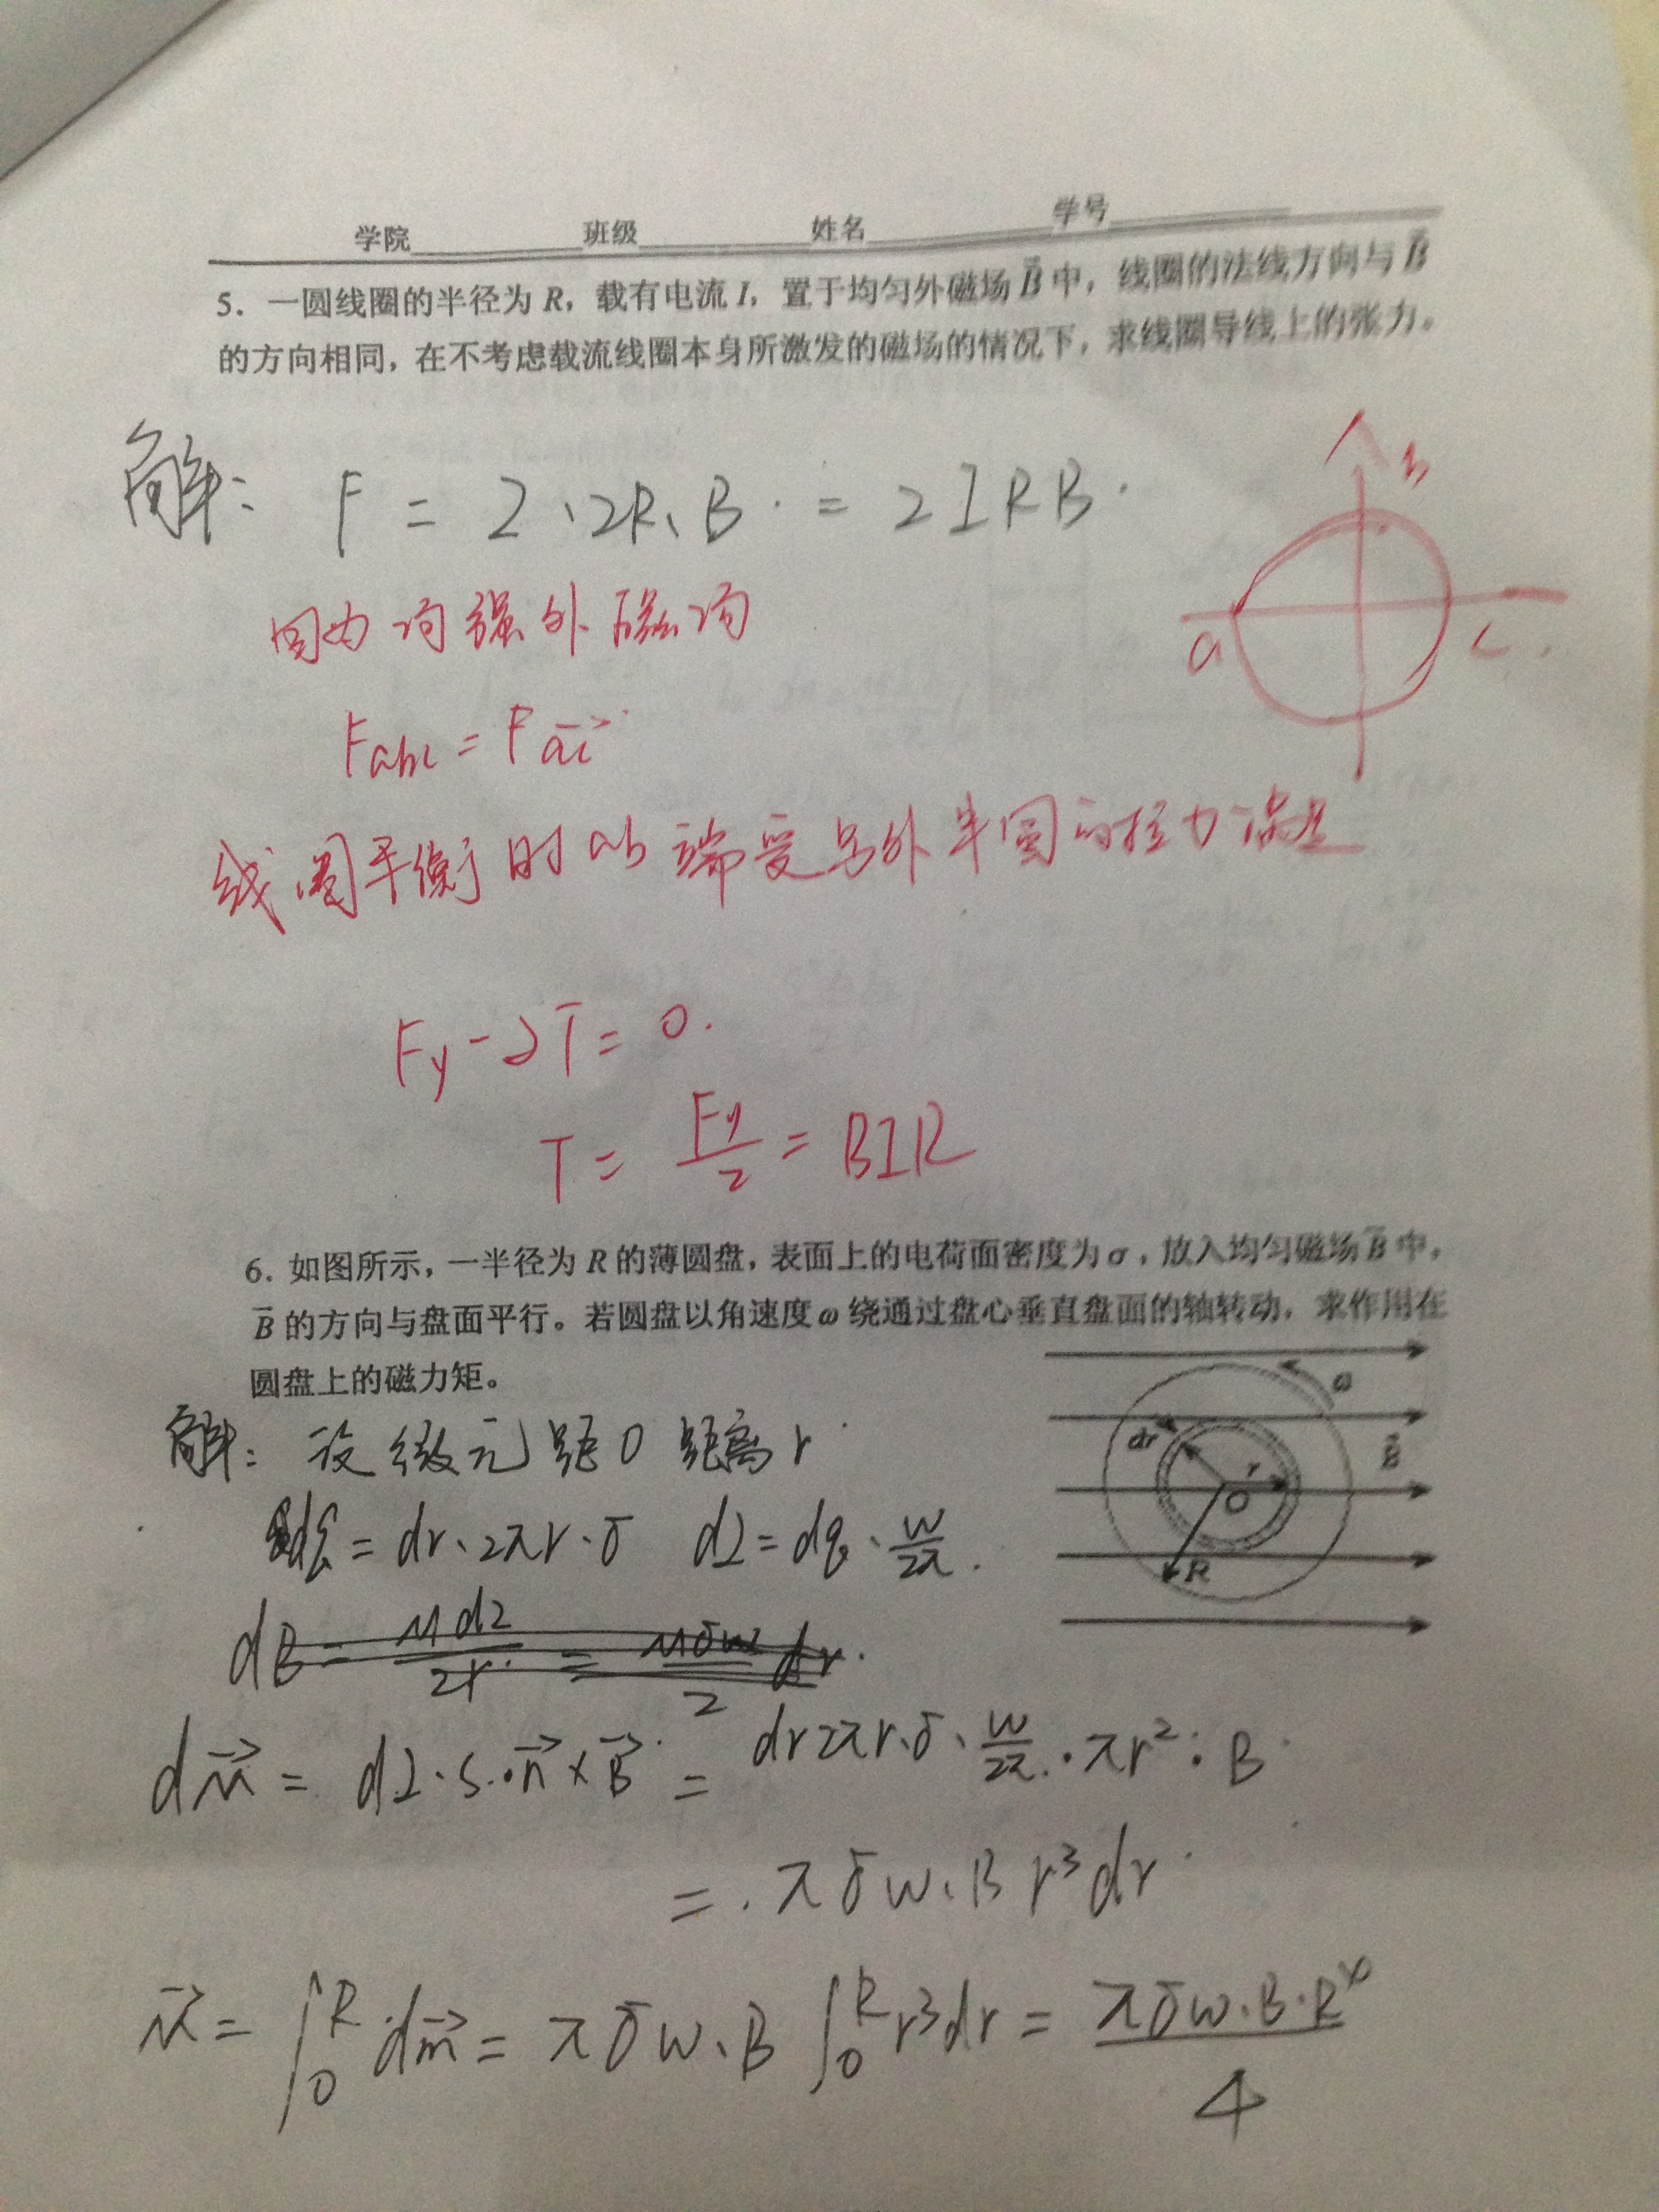 学院 班级 姓名 学号
5. 一圆线圈的半径为 R，载有电流 I，置于均匀外磁场 B⃗ 中，线圈的法线方向与 B⃗
的方向相同，在不考虑载流线圈本身所激发的磁场的情况下，求线圈导线上的张力。
解： F = I·2R·B = 2IRB
B
a c
因为匀强外磁场
Fabc = Fac⃗
线圈平衡时ab端受另外半圆的拉力满足
Fy - 2T = 0
T = Fy/2 = BIR
6. 如图所示，一半径为 R 的薄圆盘，表面上的电荷面密度为 σ，放入均匀磁场 B⃗ 中，
B⃗ 的方向与盘面平行。若圆盘以角速度 ω 绕通过盘心垂直盘面的轴转动，求作用在
圆盘上的磁力矩。
ω
dr r B⃗
O
R
解：设微元距O距离r
dq = dr·2πr·σ dI = dq·w/2π
dB = μdI/2r = μσw/2 dr
dM⃗ = dI·S·n⃗×B⃗ = dr2πr·σ·w/2π·πr²·B
= πσw·B r³dr
M⃗ = ∫₀ᴿ dm⃗ = πσw·B ∫₀ᴿ r³dr = πσw·B·R⁴/4